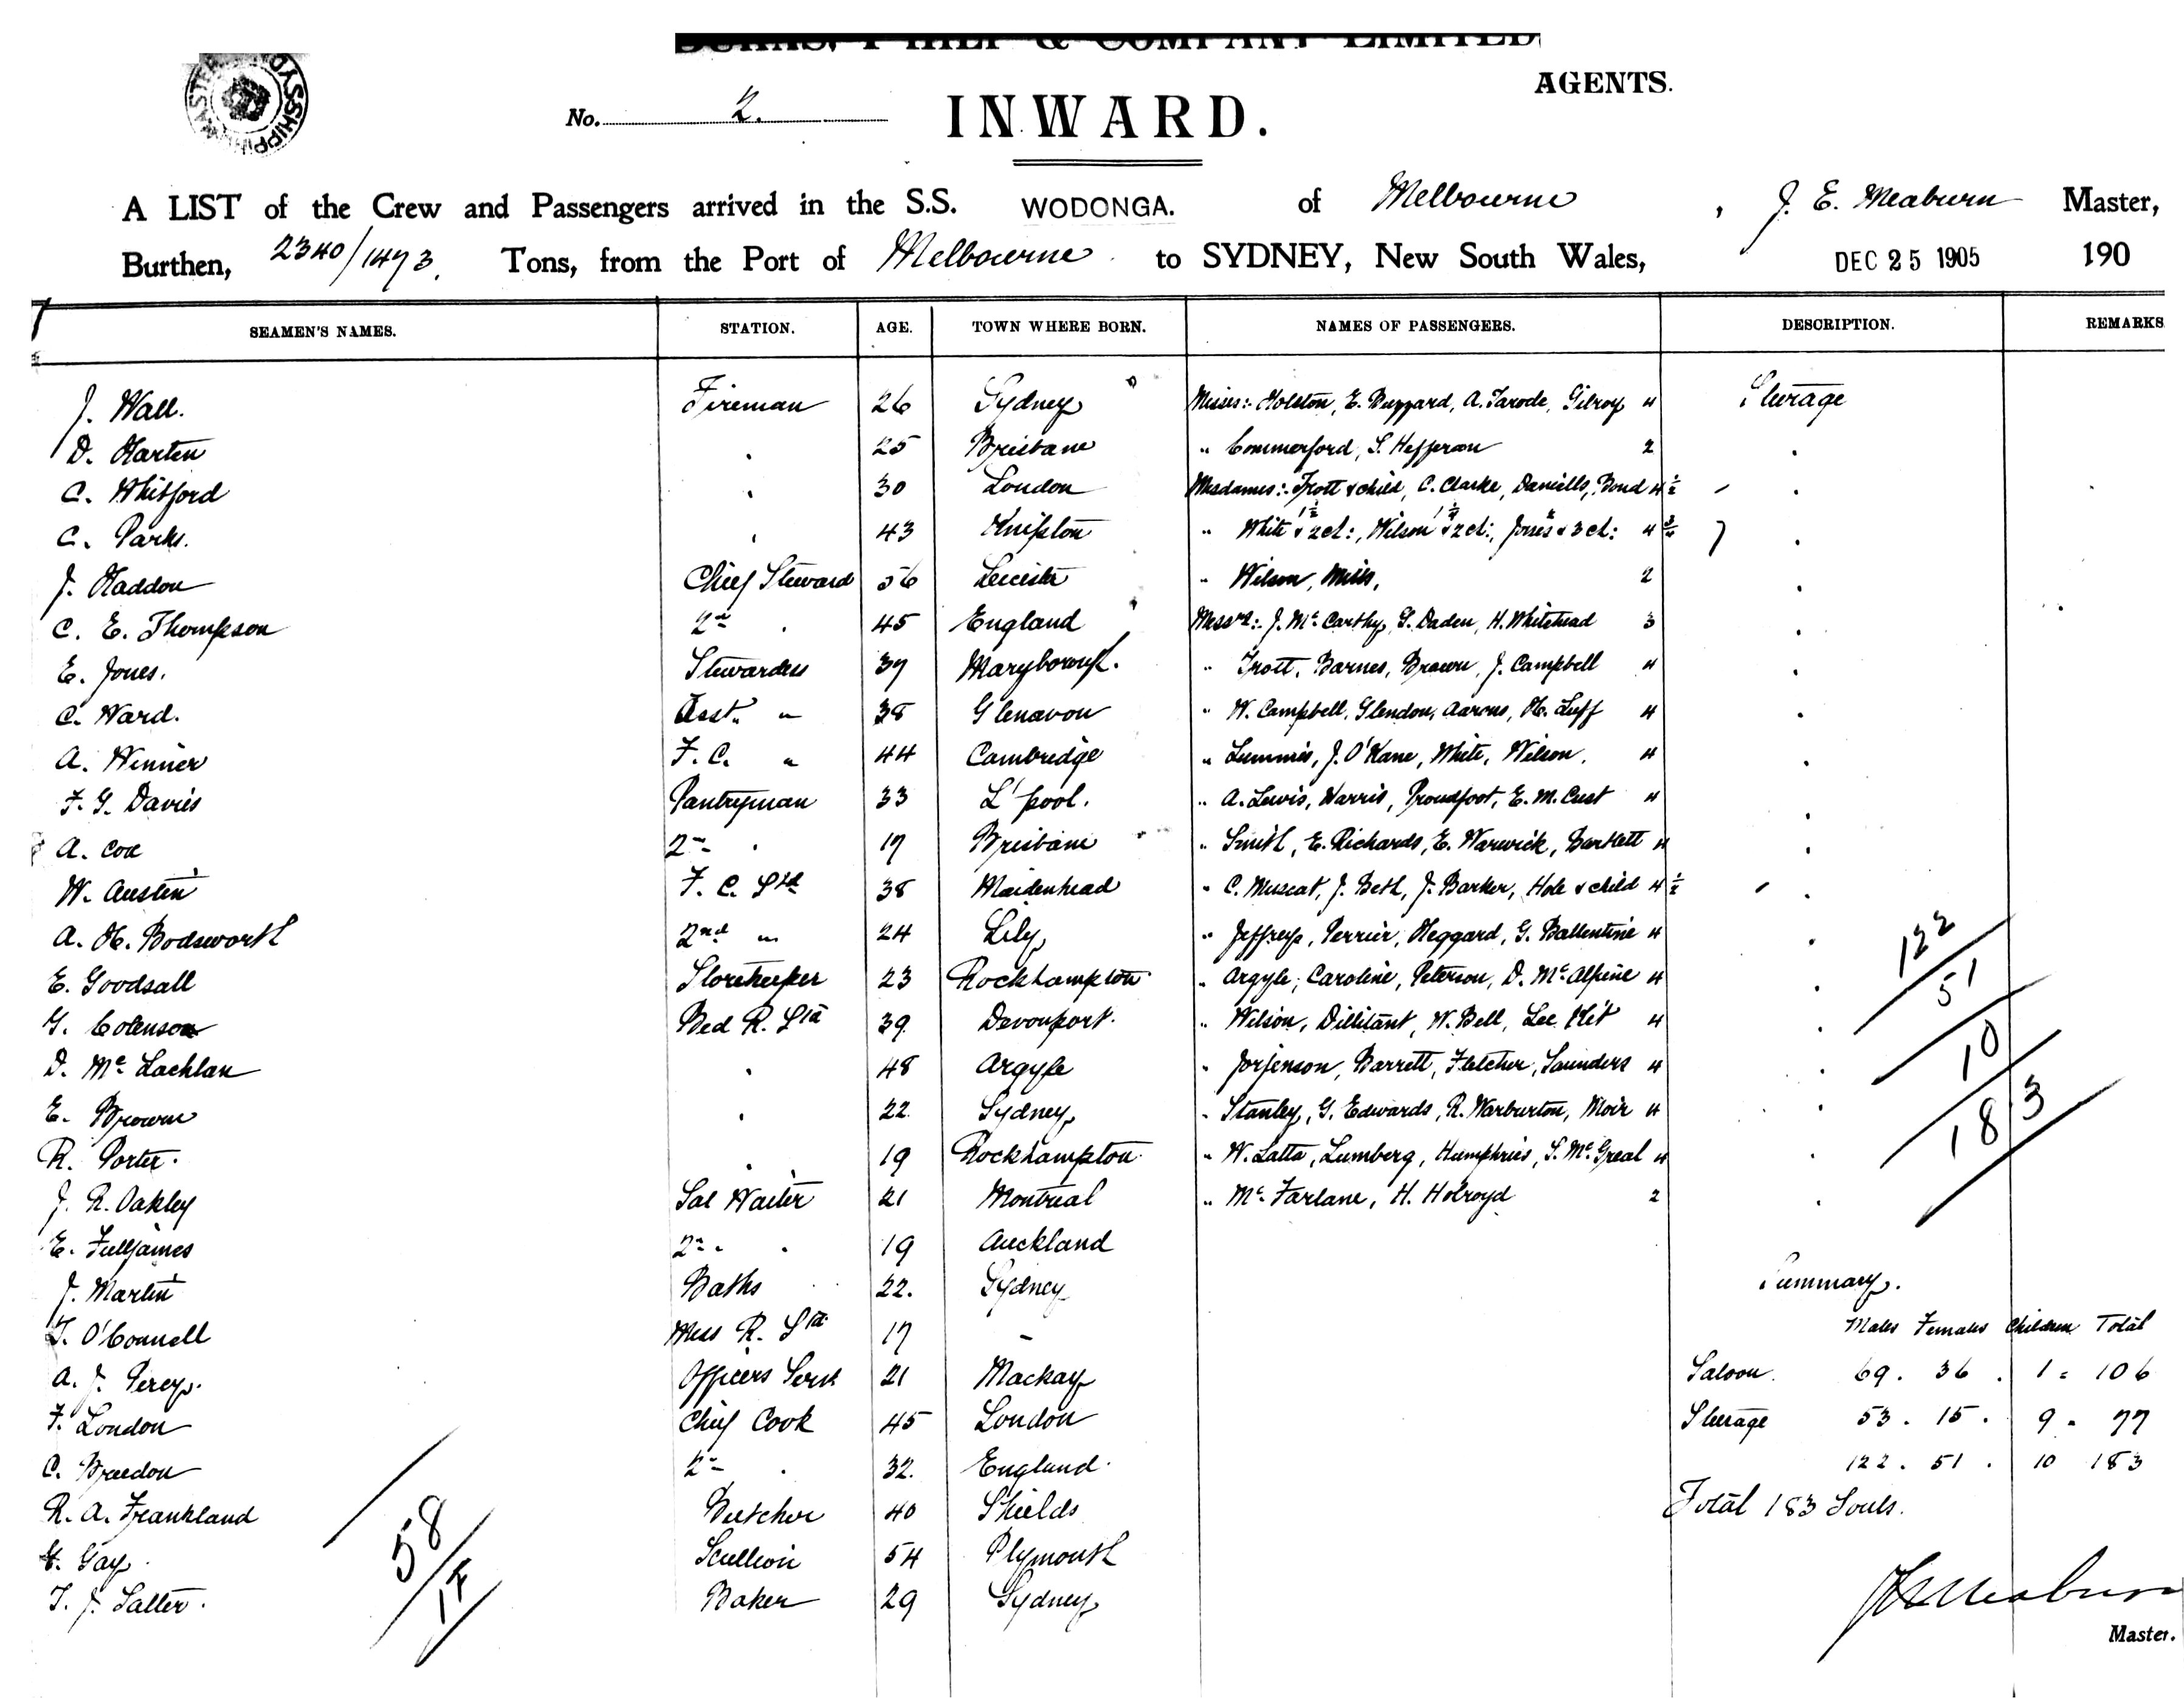 BURNS, PHILP & COMPANY LIMITED
AGENTS.
SHIPPING MASTER SYDNEY
No. 2.
INWARD.
A LIST of the Crew and Passengers arrived in the S.S. WODONGA. of Melbourne , J. E. Meaburn Master,
Burthen, 2340/1473. Tons, from the Port of Melbourne to SYDNEY, New South Wales, DEC 25 1905 190
SEAMEN'S NAMES. STATION. AGE. TOWN WHERE BORN. NAMES OF PASSENGERS. DESCRIPTION. REMARKS
J. Wall. Fireman 26 Sydney Misses:- Holston, E. Buzzard, A. Tarode, Gilroy 4 Steerage
D. Harten " 25 Brisbane " Commerford, S. Hefferon 2 "
C. Whitford " 30 London Mesdames:- Trott & child, C. Clarke, Daniells, Bond 4 1/2 "
C. Parks. " 43 Knipton " White & 2 ch:, Wilson & 2 ch:, Jones & 3 ch: 4 3/4 "
J. Haddon Chief Steward 56 Leicester " Wilson, Mills, 2 "
C. E. Thompson 2nd " 45 England Messrs:- J. McCarthy, G. Daden, H. Whitehead 3 "
E. Jones. Stewardess 37 Maryborough. " Trott, Barnes, Brown, J. Campbell 4 "
C. Ward. Asst. " 38 Glenavon " W. Campbell, Glendon, Aarons, H. Luff 4 "
A. Winner F. C. " 44 Cambridge " Lummis, J. O'Kane, White, Wilson. 4 "
F. G. Davies Pantryman 33 L'pool. " A. Lewis, Harris, Proudfoot, E. M. Cust 4 "
A. Cox 2nd " 17 Brisbane " Smith, E. Richards, E. Warwick, Bartlett 4 "
W. Austin F. C. Std 38 Maidenhead " C. Muscat, J. Beth, J. Barker, Hole & child 4 1/2 "
A. H. Bodsworth 2nd " 24 Lily " Jeffreys, Perrier, Heggard, G. Ballentine 4 "
E. Goodsall Storekeeper 23 Rockhampton " Argyle, Caroline, Peterson, D. McAlpine 4 "
G. Colenso Bed R. Std 39 Devonport. " Wilson, Dillitant, W. Bell, Lee Kit 4 "
D. McLachlan " 48 Argyle " Jorjenson, Barrett, Fletcher, Saunders 4 "
E. Brown " 22 Sydney " Stanley, G. Edwards, R. Warburton, Moir 4 "
R. Porter. " 19 Rockhampton. " W. Latta, Lumberg, Humphries, S. McGreal 4 "
J. R. Oakley Sal Waiter 21 Montreal " McFarlane, H. Holroyd 2 "
E. Fulljames 2nd " 19 Auckland
J. Martin Baths 22. Sydney
T. O'Connell Mess R. Std. 17 -
A. J. Percy. Officers Servt 21 Mackay
F. London Chief Cook 45 London
C. Breedon 2nd " 32. England.
R. A. Frankland Butcher 40 Shields
G. Gay Scullion 54 Plymouth
T. J. Salter. Baker 29 Sydney
122
51
10
183
58
Summary.
Males Females Children Total
Saloon. 69. 36. 1 = 106
Steerage 53. 15. 9 = 77
122. 51. 10 183
Total 183 Souls.
J E Meaburn
Master.